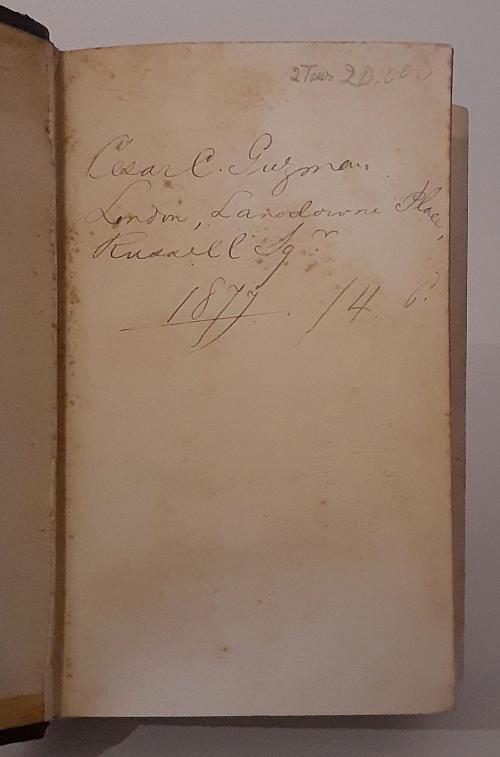 2 Tms 20.000
Cesar C. Guzman.
London, Lansdowne Place,
Russell Sqr
1877. 14. 6.